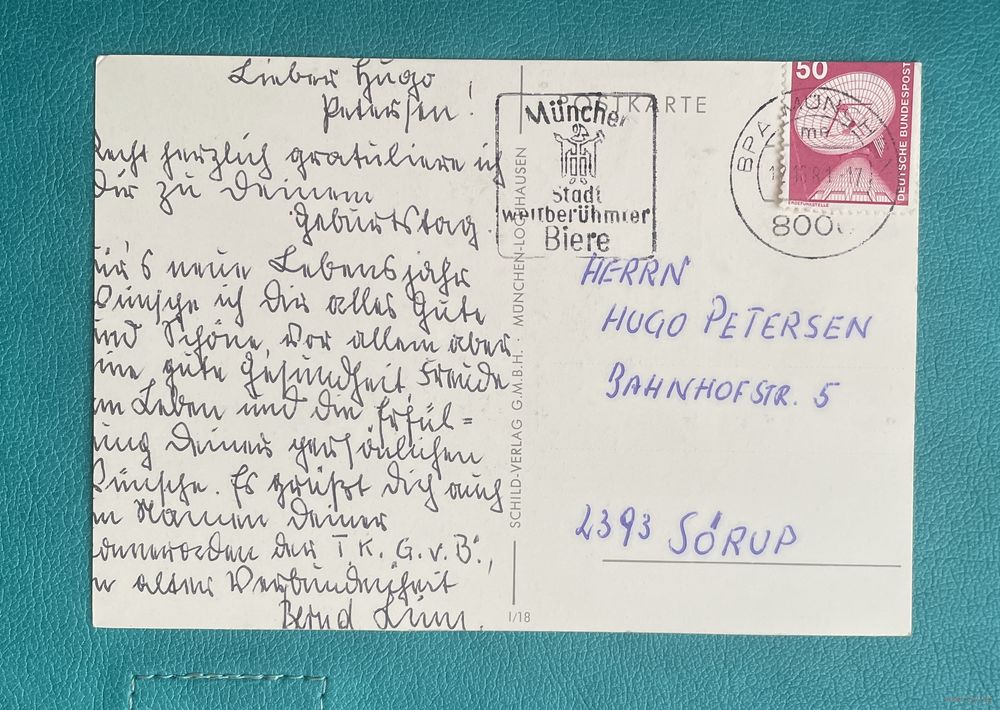 Lieber Hugo
Petersen!
Recht herzlich gratuliere ich
Dir zu Deinem
Geburtstag.
Für's neue Lebensjahr
wünsche ich Dir alles Gute
und Schöne, vor allem aber
eine gute Gesundheit, Freude
am Leben und die Erfül=
lung Deiner persönlichen
Wünsche. Es grüßt Dich auch
im Namen Deiner
der T.K.G.v.B.,
in alter Verbundenheit
Bernd
POSTKARTE
München
Stadt
weltberühmter
Biere
SCHILD-VERLAG G.M.B.H. · MÜNCHEN-LOCHHAUSEN
I/18
50
DEUTSCHE BUNDESPOST
ERDEFUNKSTELLE
BPA MÜNCHEN
mc
8000
HERRN
HUGO PETERSEN
BAHNHOFSTR. 5
2393 SÖRUP